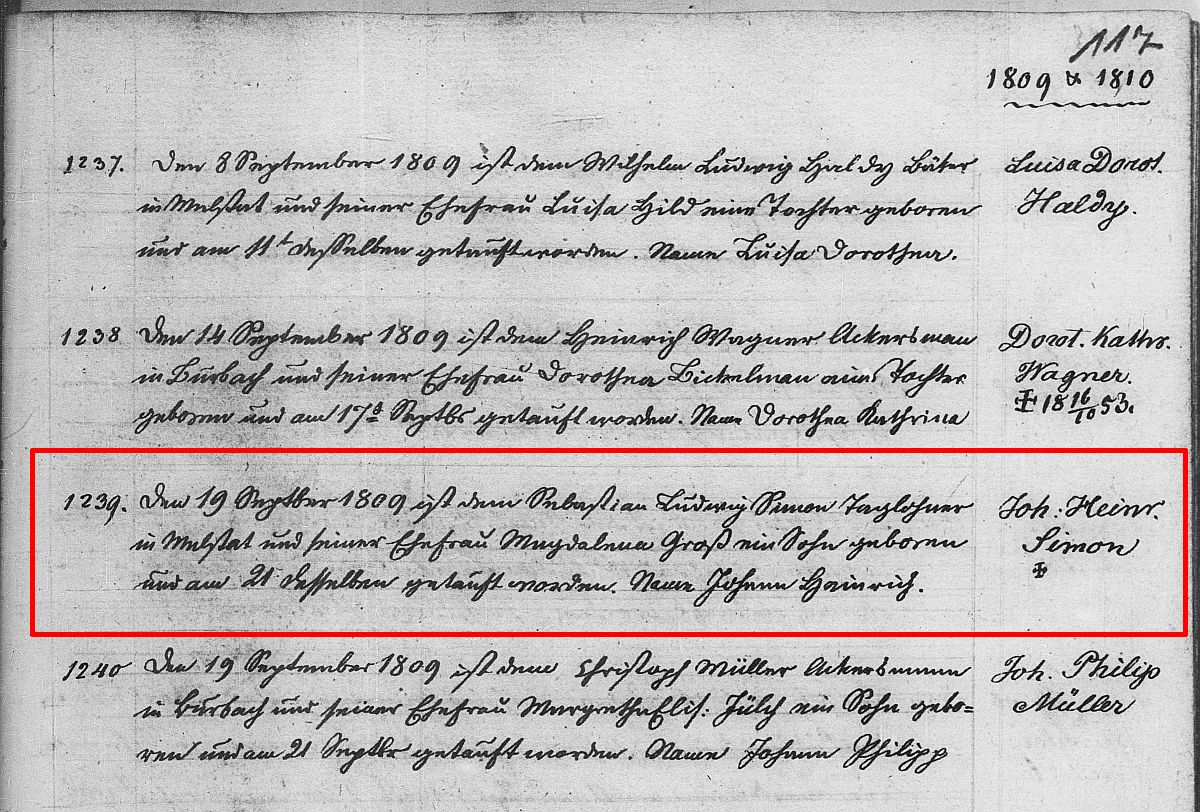 117
1809 & 1810
1237. Den 8 September 1809 ist dem Wilhelm Ludwig Haldy Bäker
in Malstat und seiner Ehefrau Luisa Hild eine Tochter geboren
und am 11t desselben getauft worden. Name Luisa Dorothea.
Luisa Dorot.
Haldy.
1238 Den 14 September 1809 ist dem Heinrich Wagner Ackersman
in Burbach und seiner Ehefrau Dorothea Bickelman eine Tochter
geboren und am 17t Septbr getauft worden. Name Dorothea Kathrina
Dorot. Kathr.
Wagner.
✠ 18 16/10 53.
1239. Den 19 Septber 1809 ist dem Sebastian Ludwig Simon Taglohner
in Malstat und seiner Ehefrau Magdalena Groß ein Sohn geboren
und am 21 desselben getauft worden. Name Johann Heinrich.
Joh. Heinr.
Simon
✠
1240 Den 19 September 1809 ist dem Christoph Müller Ackersmann
in Burbach und seiner Ehefrau Margretha Elis: Jülch ein Sohn gebo=
ren und am 21 Septbr getauft worden. Name Johann Philipp
Joh. Philip
Müller